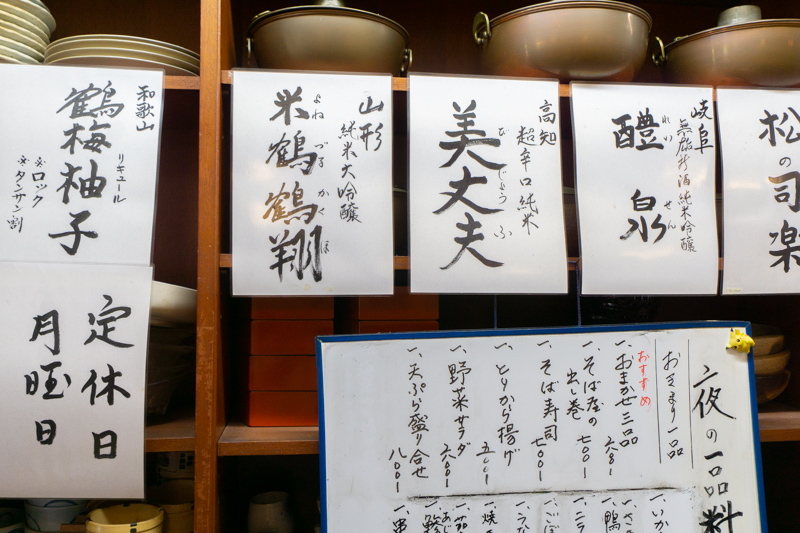 和歌山
鶴梅柚子
リキュール
※ロック
※タンサン割
定休日
月曜日
山形
純米大吟醸
米鶴鶴翔
よねづるかくほ
高知
超辛口純米
美丈夫
びじょうふ
岐阜
無濾過生酒純米吟醸
醴泉
れいせん
松の司楽
夜の一品料
おきまり一品
おすすめ
一、おまかせ三品
一、そば屋の
出し巻
七〇〇
一、そば寿司
七〇〇
一、とりから揚げ
五〇〇
一、野菜サラダ
六〇〇
一、天ぷら盛り合せ
八〇〇
一、いか